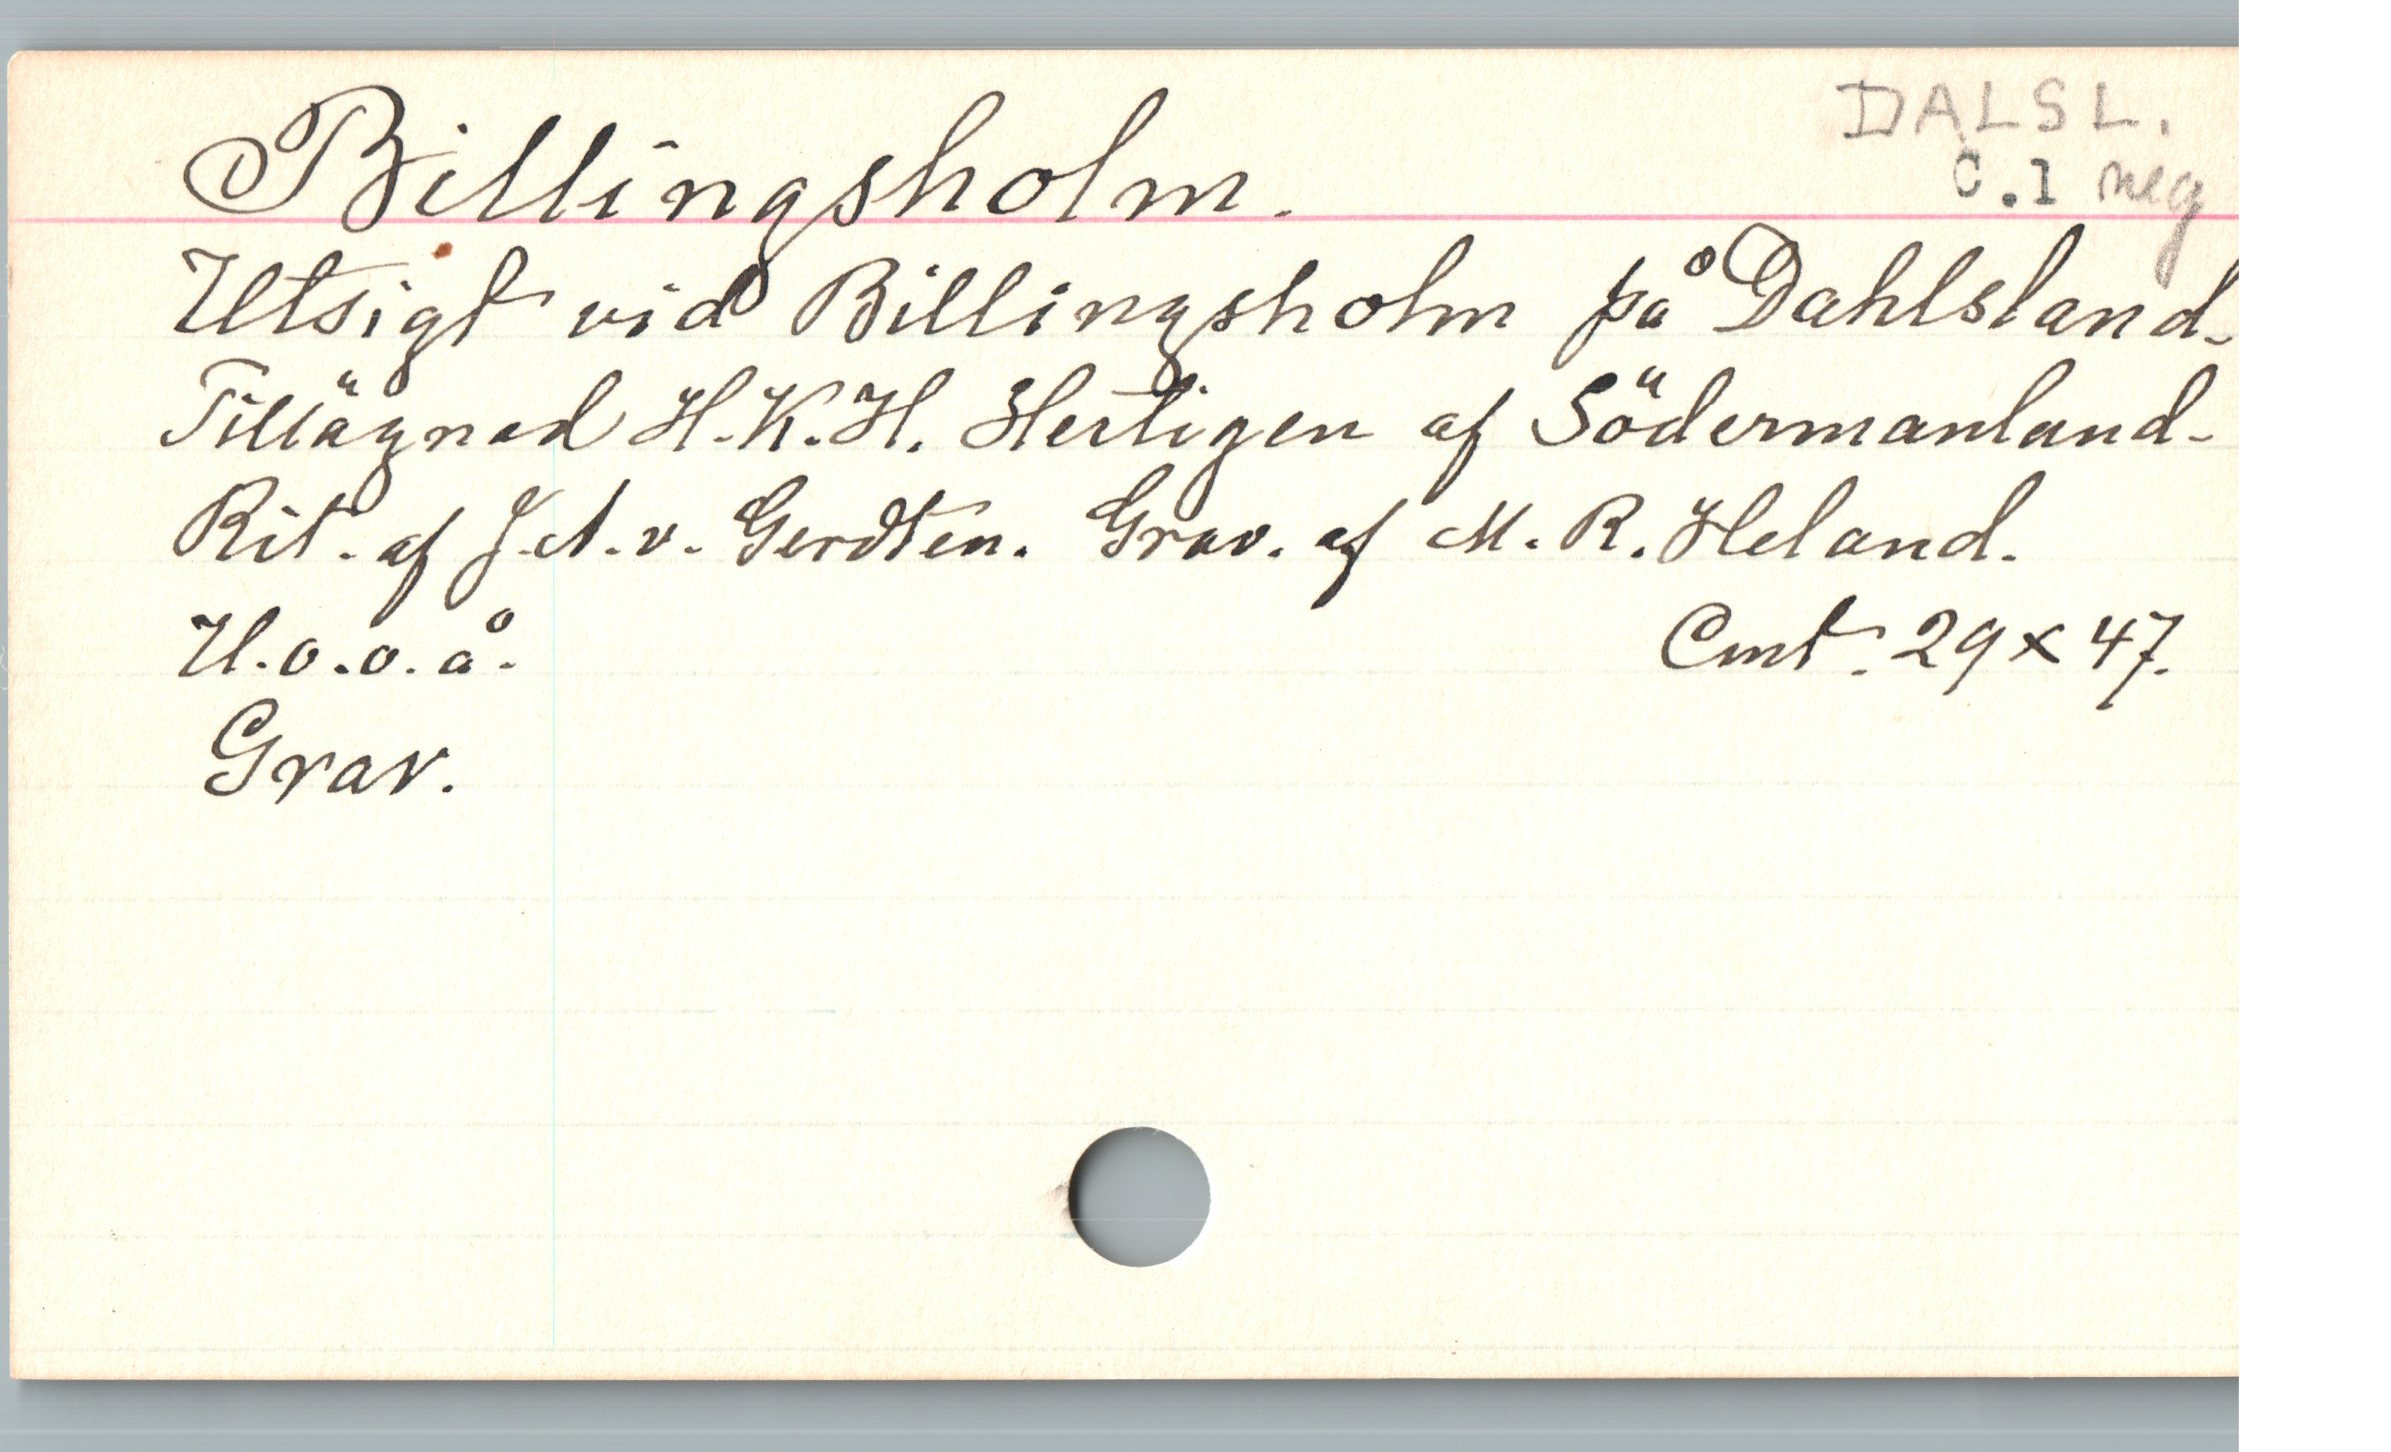 Billingsholm.
DALSL.
C.1 neg
Utsigt vid Billingsholm på Dahlsland.
Tillägnad H.K.H. Hertigen af Södermanland.
Rit. af J.A.v. Gerdten. Grav. af M.R. Heland.
U.o.o.å.
Cmt. 29 x 47.
Grav.